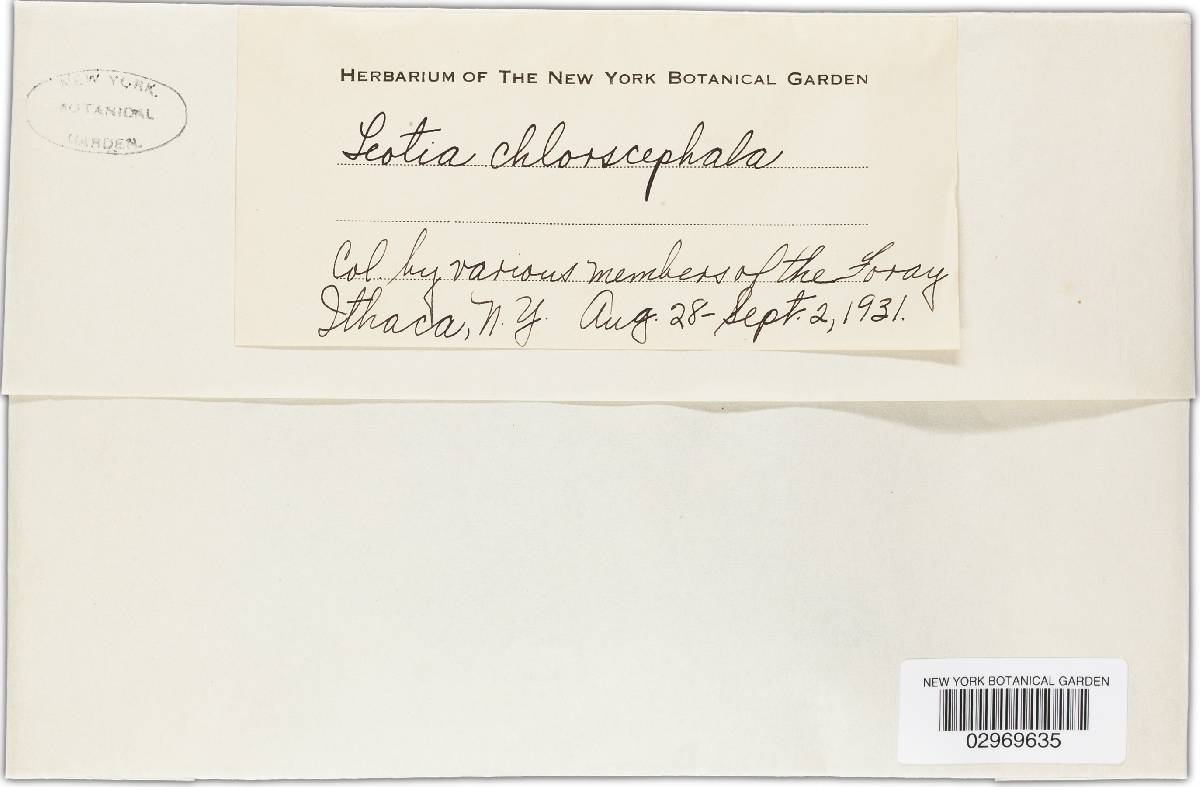 NEW YORK.
BOTANICAL
GARDEN.
HERBARIUM OF THE NEW YORK BOTANICAL GARDEN
Leotia chlorocephala
Col. by various members of the Foray
Ithaca, N.Y. Aug. 28-Sept. 2, 1931.
NEW YORK BOTANICAL GARDEN
02969635